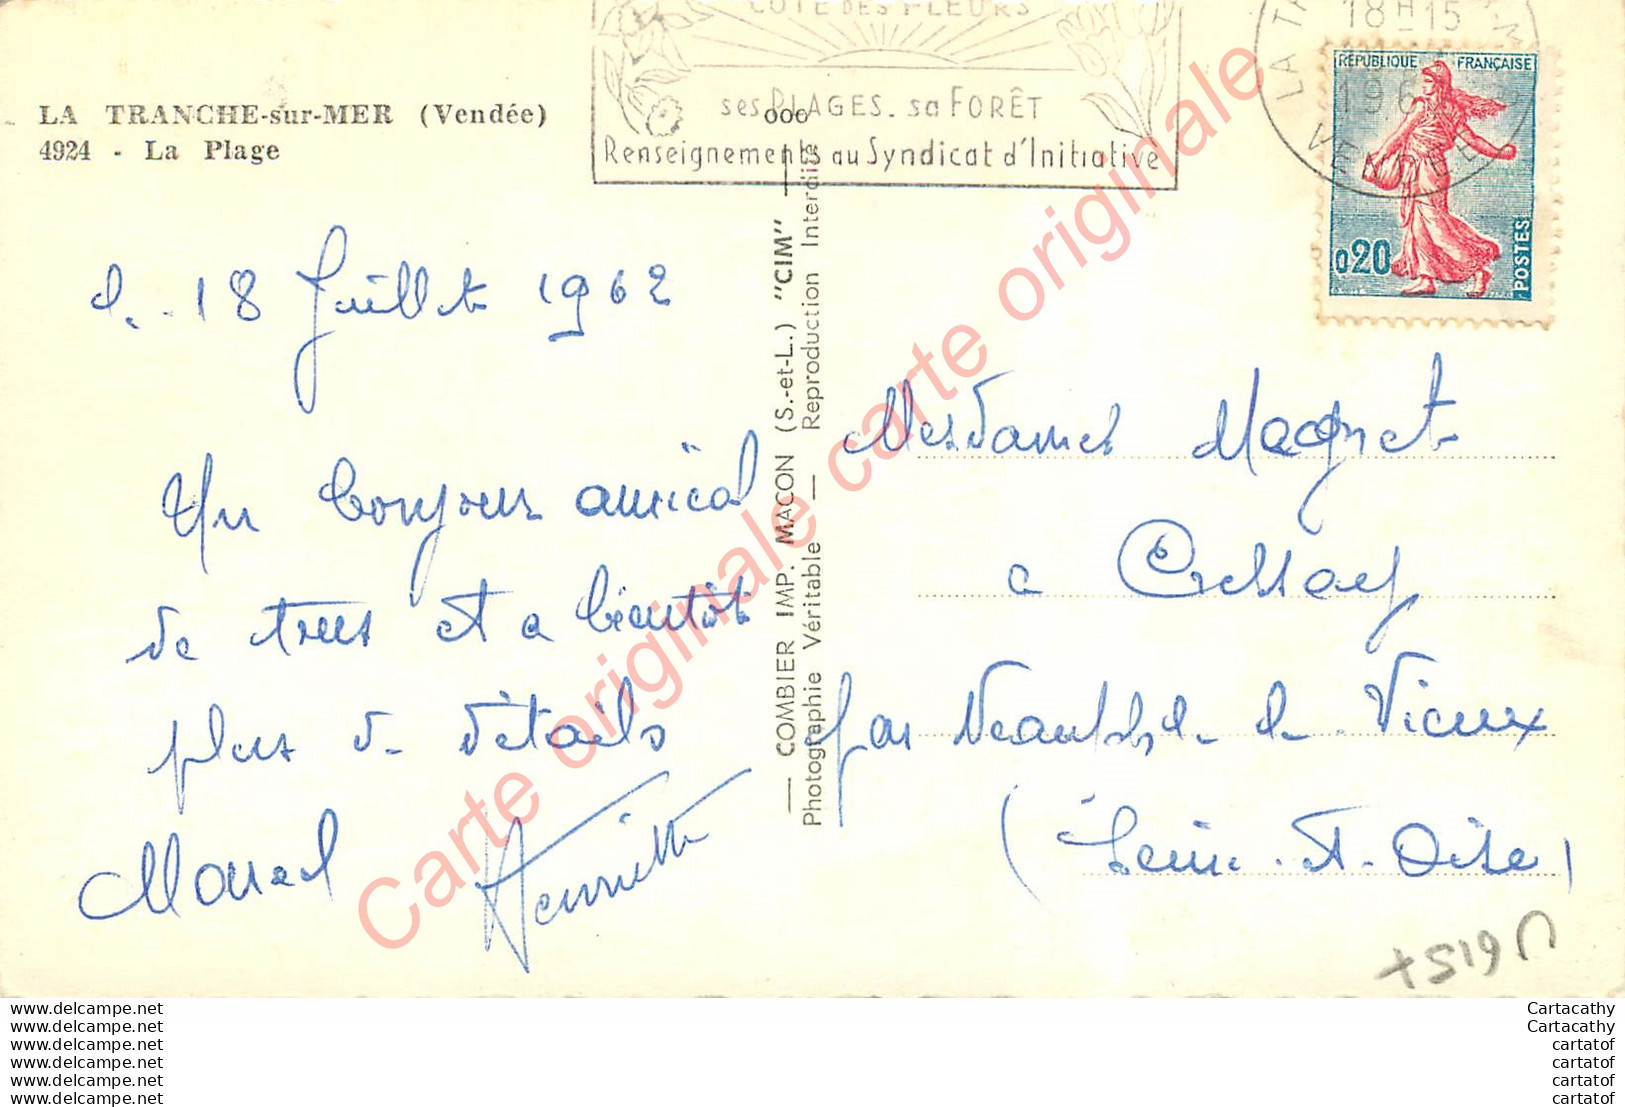 LA TRANCHE-sur-MER (Vendée)
4924 - La Plage
CÔTE DES FLEURS
ses PLAGES. sa FORÊT
Renseignements au Syndicat d'Initiative
ooo
18H15
VENDÉE
RÉPUBLIQUE FRANÇAISE
0,20
POSTES
le 18 Juillet 1962
Un bonjour amical
de tous et a bientôt
plus de détails
Marcel Henriette
— COMBIER IMP. MACON (S.-et-L.) "CIM" —
Photographie Véritable — Reproduction Interdite
Mesdames Magnet
a Cressay
par Neauphle-le-Vieux
(Seine-et-Oise)
Carte originale carte originale
www.delcampe.net
www.delcampe.net
www.delcampe.net
www.delcampe.net
www.delcampe.net
www.delcampe.net
Cartacathy
Cartacathy
cartatof
cartatof
cartatof
cartatof